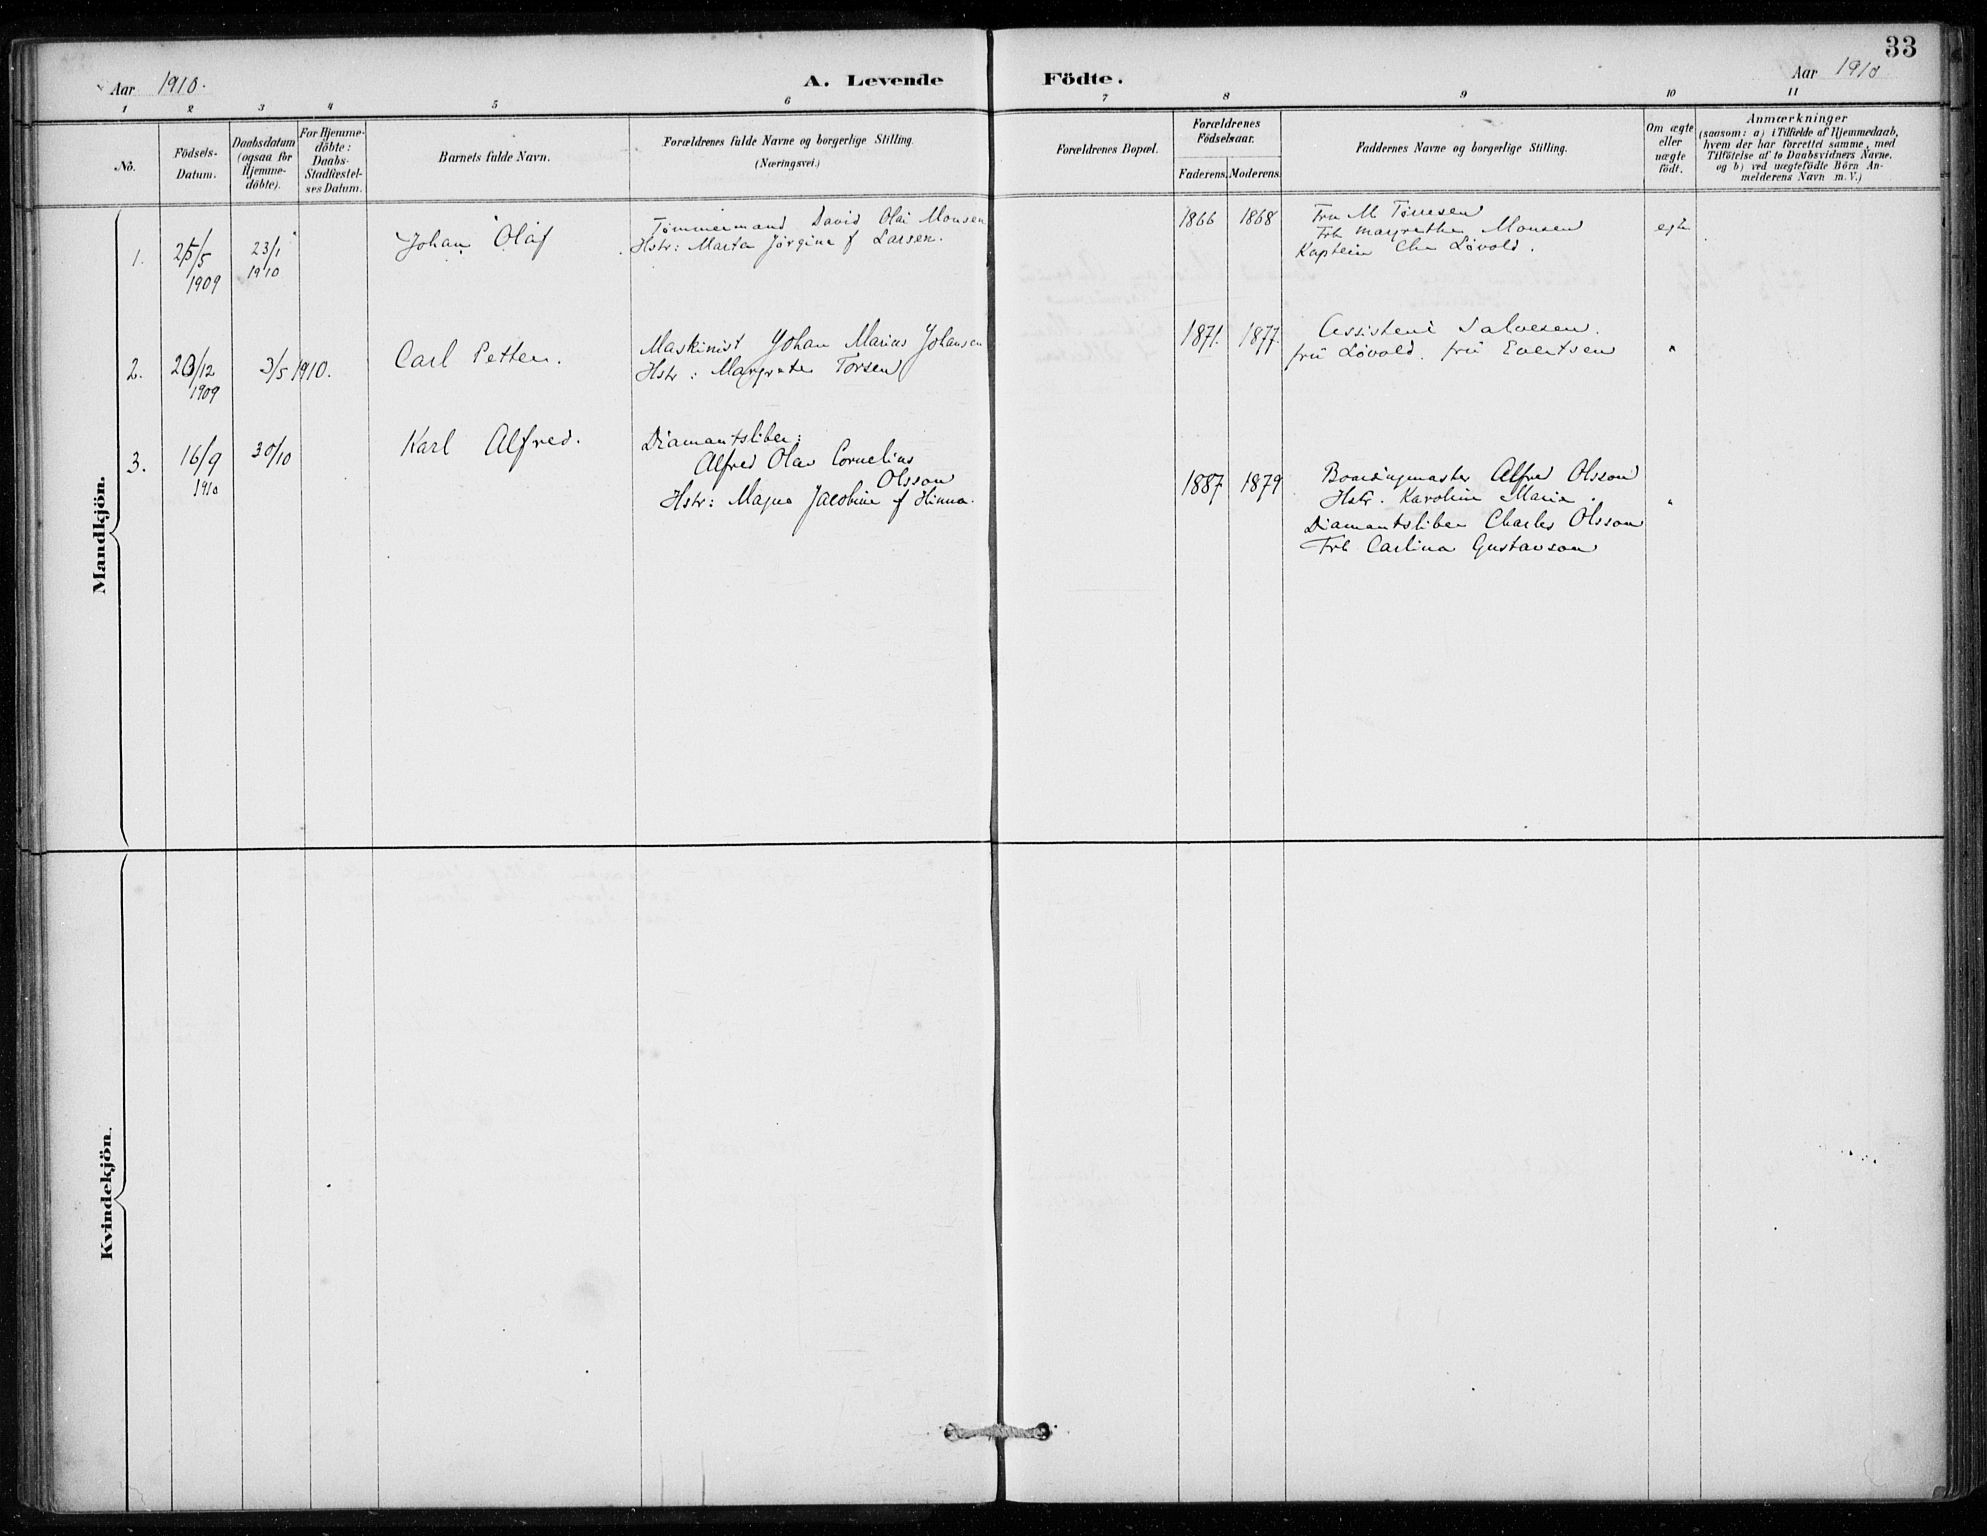 33
Aar 1910.
A. Levende Födte.
Aar 1910
1 2 3 4 5 6 7 8 9 10 11
No.
Födsels-
Datum.
Daabsdatum
(ogsaa for
Hjemme-
döbte).
For Hjemme-
döbte:
Daabs-
Stadfæstel-
ses Datum.
Barnets fulde Navn.
Forældrenes fulde Navne og borgerlige Stilling.
(Næringsvei.)
Forældrenes Bopæl.
Forældrenes
Födselsaar.
Faderens. Moderens.
Faddernes Navne og borgerlige Stilling.
Om ægte
eller
uægte
födt.
Anmærkninger
(saasom: a) i Tilfælde af Hjemmedaab,
hvem der har forrettet samme, med
Tilföielse af to Daabsvidners Navne,
og b) ved uægtefödte Börn An-
melderens Navn m. V.)
Mandkjön.
1.
25/5
1909
23/1
1910
Johan Olaf
Tømmermand David Olai Monsen
Hstr: Marta Jørgine f Larsen.
1866 1868
Fru M Tørresen
Frk Margrethe Monsen
Kaptein Chr Løvold.
egte
2.
20/12
1909
3/5 1910.
Carl Petter.
Maskinist Johan Marius Johansen
Hstr: Margrete Torsen
1871. 1877.
Assistent Salvesen.
fru Løvold. fru Evertsen
"
3.
16/9
1910
30/10
Karl Alfred.
Diamantsliber:
Alfred Olav Cornelius
Olsson
Hstr: Magna Jacobine f Hinna.
1887 1879
Boardingmaster Alfred Olsson
Hstr. Karoline Marie.
Diamantsliber Charles Olsson
Frk Carlina Gustavson
"
Kvindekjön.